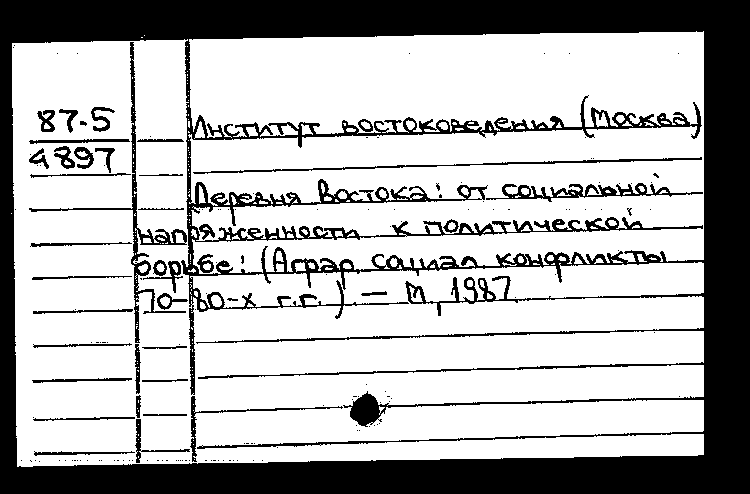 87-5
4897
Институт востоковедения (Москва)
Деревня Востока: от социальной
напряженности к политической
борьбе: (Аграр. социал конфликты
70-80-х г.г.) — М, 1987